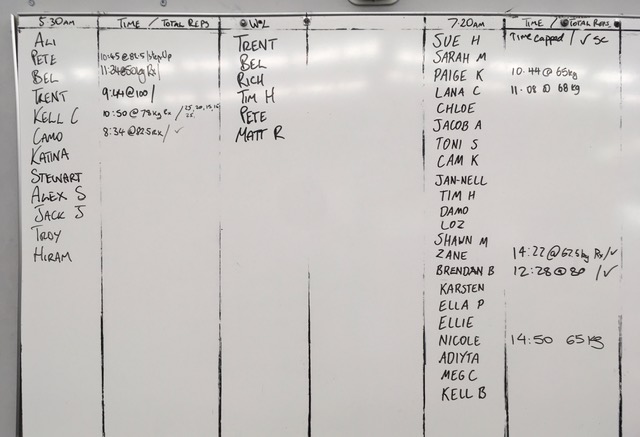 5:30am TIME / TOTAL REPS
ALI
PETE
BEL
TRENT 9:44@100/
KELL C 10:50@78kg Rx/25,20,15,15
CAMO 8:34@82.5Rx/✓
KATINA
STEWART
ALEX S
JACK J
TROY
HIRAM
WOL
TRENT
BEL
RICH
TIM H
PETE
MATT R
7:20am TIME / TOTAL REPS
SUE H Time capped / ✓ SC
SARAH M
PAIGE K 10:44@65kg
LANA C 11:08@68kg
CHLOE
JACOB A
TONI S
CAM K
JAN-NELL
TIM H
DAMO
LOZ
SHAWN M
ZANE 14:22@62.5kg Rx/✓
BRENDAN B 12:28@80 /✓
KARSTEN
ELLA P
ELLIE
NICOLE 14:50 65kg
ADIYTA
MEG C
KELL B